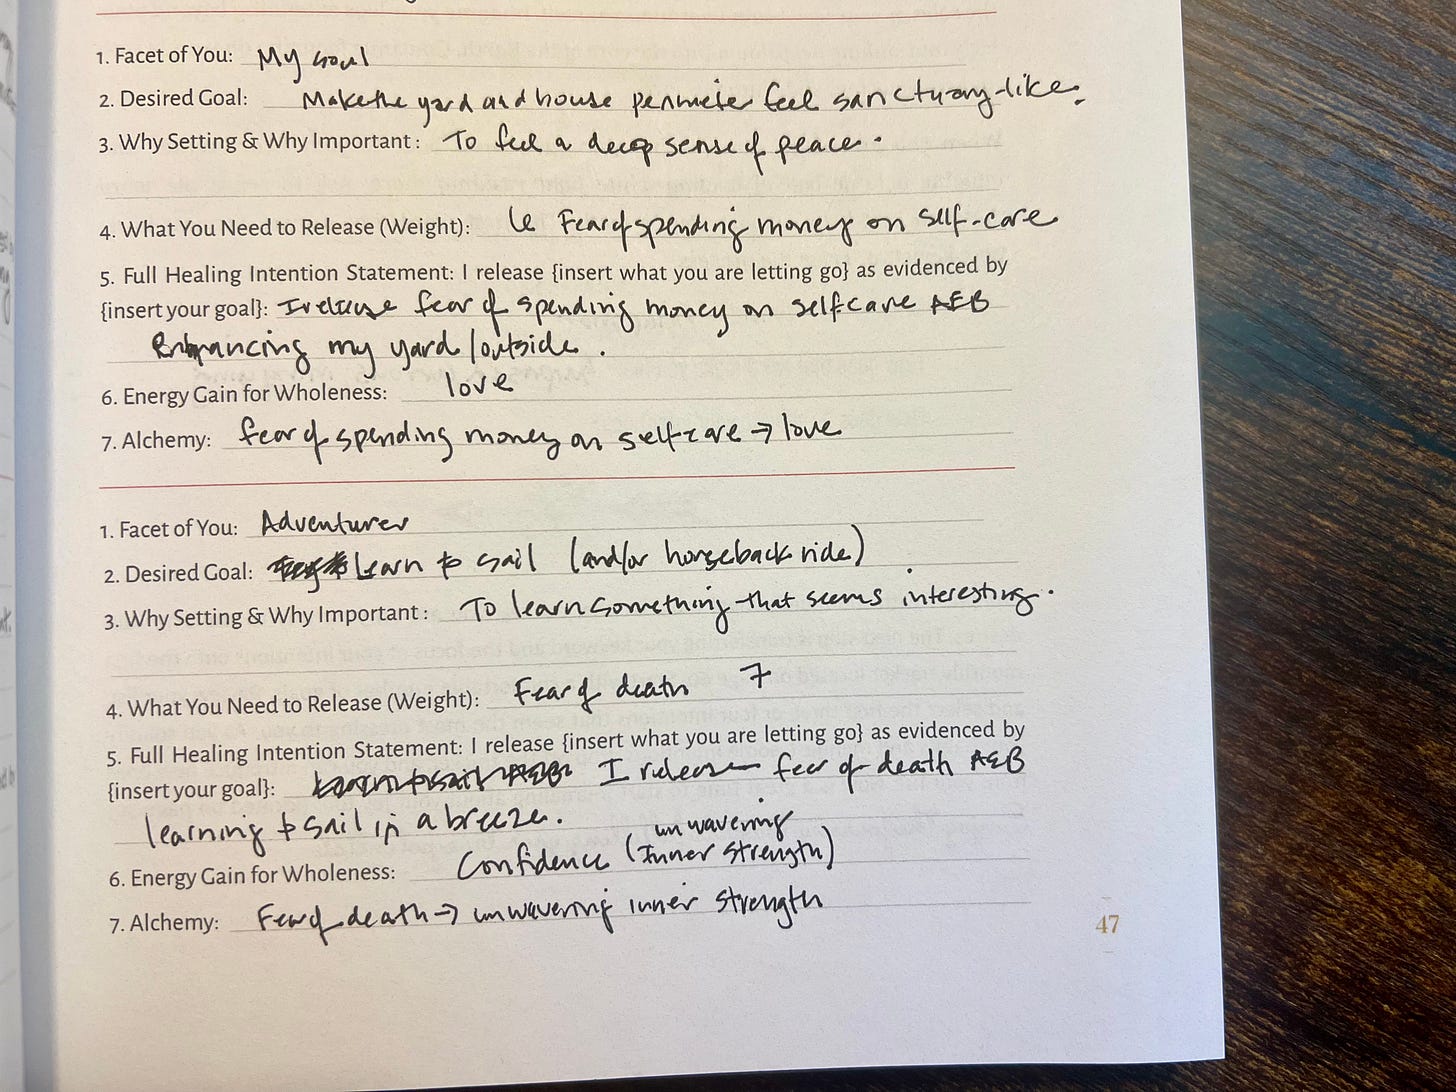 1. Facet of You: My soul
2. Desired Goal: Make the yard and house perimeter feel sanctuary-like.
3. Why Setting & Why Important: To feel a deep sense of peace.
4. What You Need to Release (Weight): Fear of spending money on self-care
5. Full Healing Intention Statement: I release {insert what you are letting go} as evidenced by
{insert your goal}: I release fear of spending money on selfcare AEB
Enhancing my yard/outside.
6. Energy Gain for Wholeness: love
7. Alchemy: fear of spending money on selfcare → love
1. Facet of You: Adventurer
2. Desired Goal: Learn to sail (and/or horseback ride)
3. Why Setting & Why Important: To learn something that seems interesting.
4. What You Need to Release (Weight): Fear of death 7
5. Full Healing Intention Statement: I release {insert what you are letting go} as evidenced by
{insert your goal}: I release fear of death AEB
learning to sail in a breeze.
unwavering
6. Energy Gain for Wholeness: Confidence (Inner strength)
7. Alchemy: Fear of death → unwavering inner strength
47